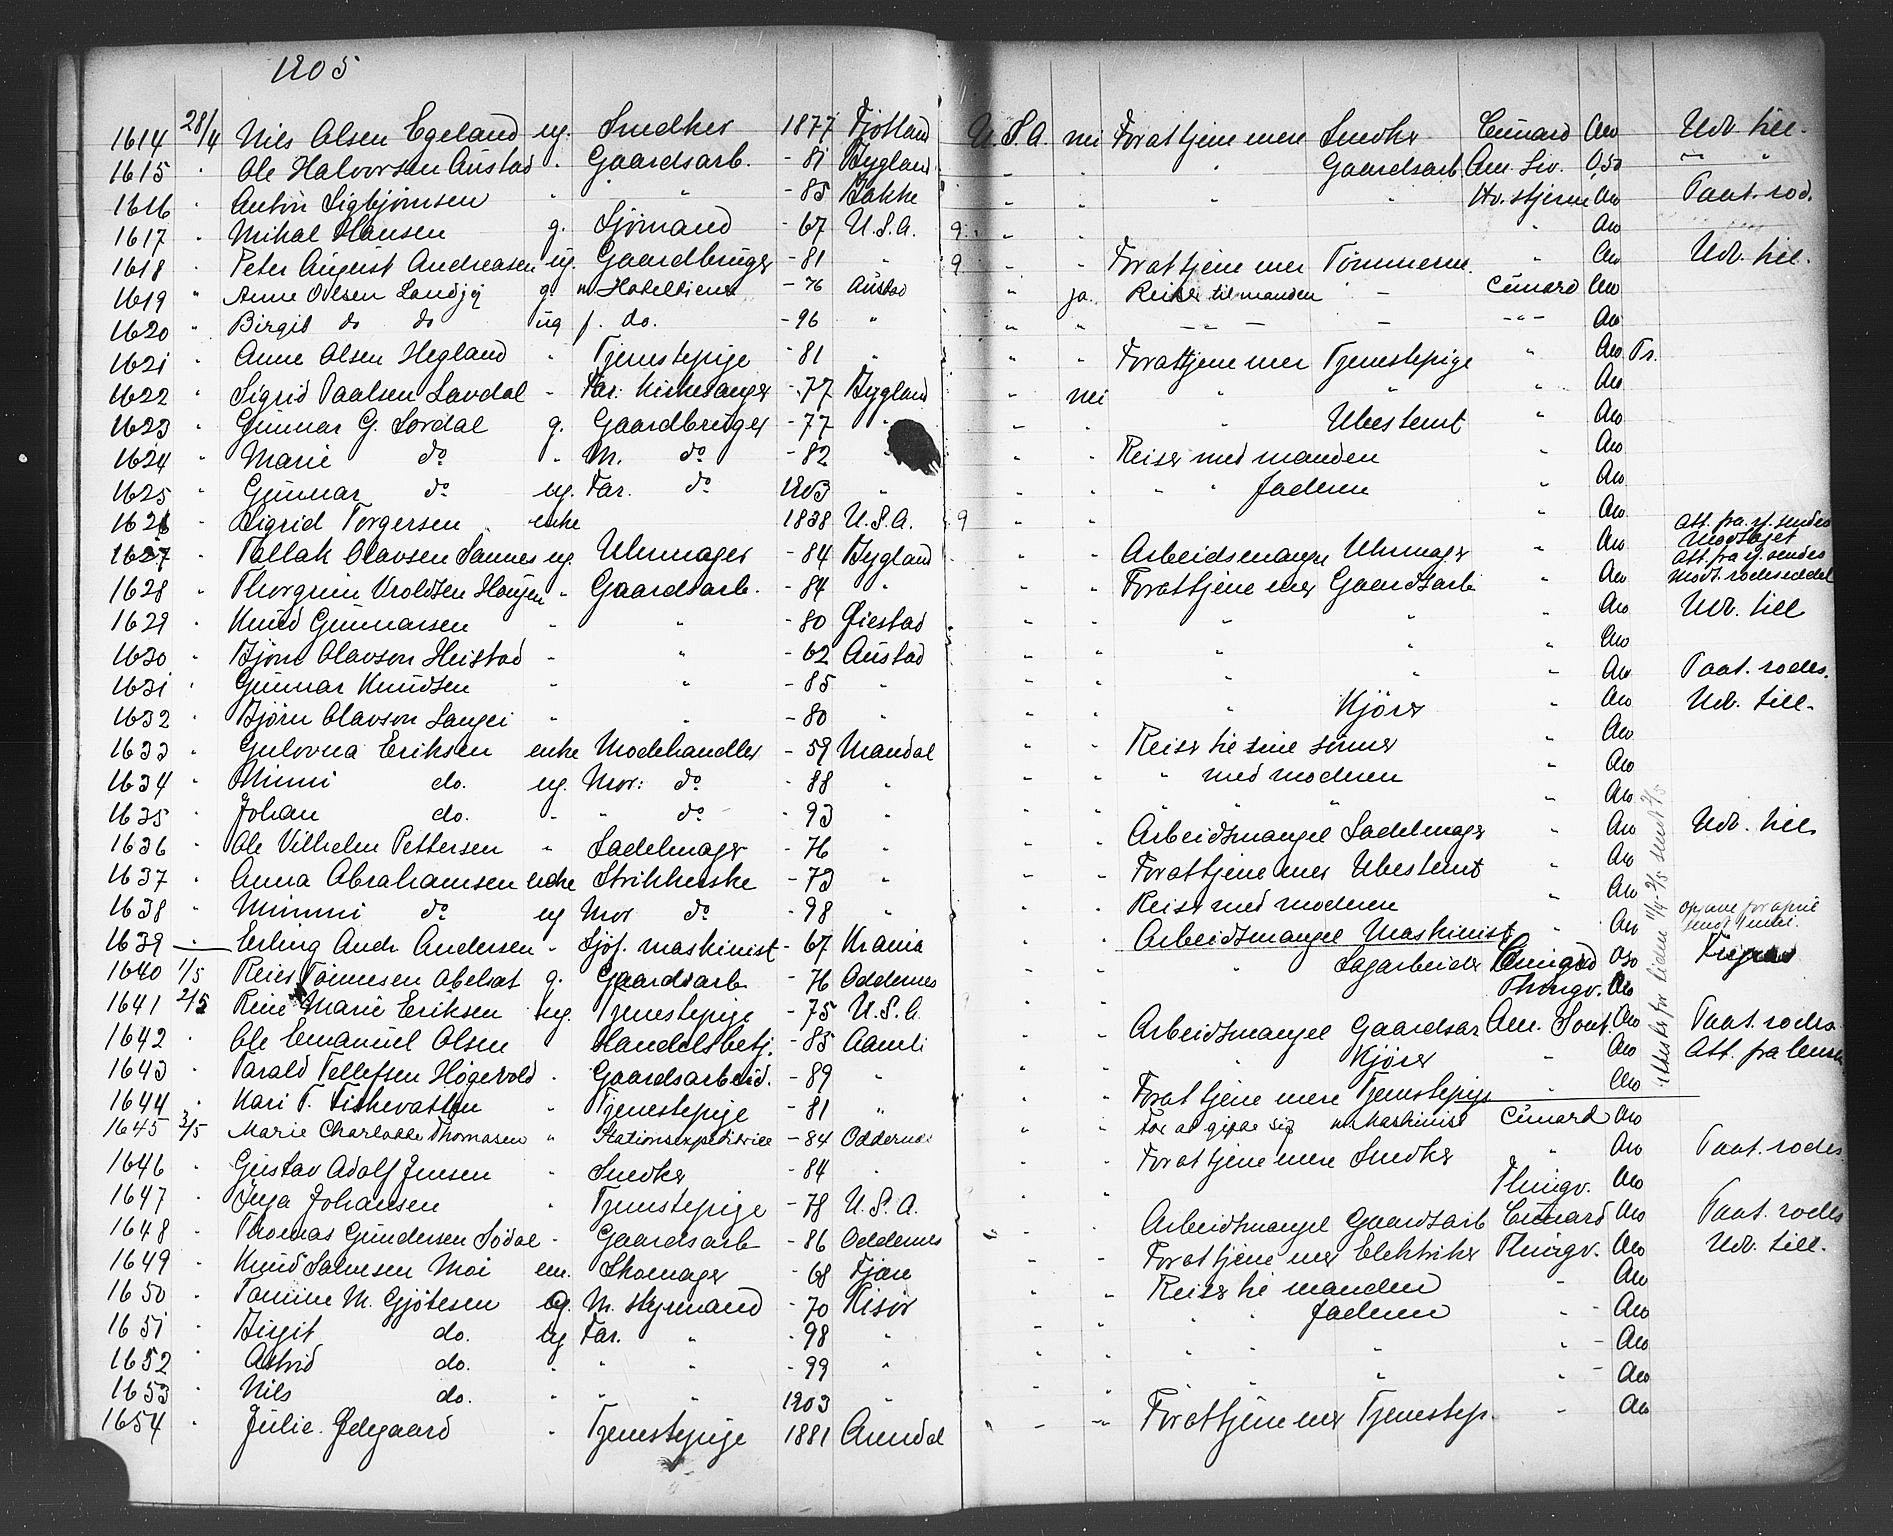 1905
1614 28/4 Nils Olsen Egeland ug. Smedker 1877 Fjotland U.S.A. nei For at tjene mere Smedker Cunard Am Udv. till.
1615 " Ole Halvorsen Austad " Gaardsarb. - 81 Bygland " " " Gaardsarb Am. Liv. O,50 " "
1616 " Anton Sigbjörnsen " " - 85 Bakke " " " " Hv. stjerne Am Paat. rod.
1617 " Mikal Hansen g. Sjömand - 67 U.S.A. 9 " " " Am
1618 " Peter August Andreasen ug. Gaardbruger - 81 " 9 " " For at tjene mer Tømmerm. " Am Udv. till.
1619 " Anne Olsen g. m Hoteltiener - 76 Austad " ja. Reiser til manden " - Cunard Am
1620 " Birgit do do ug f. do. - 96 " " " - " - - - " - Am
1621 " Anne Olsen Hegland " Tjenestepige - 81 " " " For at tjene mer Tjenestepige " Am Tr.
1622 " Sigrid Paalsen Lavdal " Far: Kirkesanger - 77 Bygland " nei " " " Am
1623 " Gunnar G. Lordal g. Gaardbruger - 77 " " " " Ubestemt " Am
1624 " Marie do " M. do - 82 " " " Reiser med manden " Am
1625 " Gunnar do ug. Far. do 1903 " " " " " faderen " Am
1626 " Sigrid Torgersen enke 1838 U.S.A. " 9 " " " Am
1627 " Tallak Olavsen Sannes ug. Uhrmager - 84 Bygland " " Arbeidsmangel Uhrmager " Am Att. fra sendes Modtaget
1628 " Thorgrim Uroldsen Haugen " Gaardsarb. - 84 " " " For at tjene mer Gaardsarb " Am Att. fra sendes
1629 " Knud Gunnarsen " " - 80 Øiestad " " " " " Am Udv. till
1630 " Björn Olavson Heistad " " - 62 Austad " " " " " Am
1631 " Gunnar Knudsen " " - 85 " " " " " " Am Paat. rodes.
1632 " Björn Olavson Langei " " - 80 " " " " Kjörer " Am Udv. till.
1633 " Gulovna Eriksen enke Modehandler - 59 Mandal " " Reiser til sine sönner Am
1634 " Minni do. ug. Mor: do - 88 " " " " med moderen " Am
1635 " Johan do. " " do - 93 " " " " " " Am
1636 " Ole Vilhelm Pettersen " Sadelmager - 76 " " " Arbeidsmangel Sadelmager " Am Udv. till
1637 " Anna Abrahamsen enke Strikkerske - 73 " " " For at tjene mer Ubestemt Am
1638 " Minmi do ug Mor do - 98 " " " Reiser med moderen " Am
1639 " Erling Andr. Andersen " Sjöf. maskinist - 67 Krania " " Arbeidsmangel Maskinist " Am Opgave for april sendt 1 mai.
1640 1/5 Reier Tönnesen Abelsæt g. Gaardsarb - 76 Oddernes " " " Sagarbeider Cunard O50
1641 2/5 Marie Eriksen ug. Tjenestepige - 75 U.S.A. " " Thingv. Am
1642 " Ole Emanuel Olsen Handelsbetj. - 85 Aamli " " Arbeidsmangel Gaardsar Am. Sout. Am Paat. rodes
1643 " Tarald Tellefsen Högevold " Gaardsarbeid. - 89 " " " " Kjörer " Am Att. fra
1644 " Kari T. Fiskevatten " Tjenestepige - 81 " " " For at tjene mere Tjenestepige " Am
1645 2/5 Marie Charlotte Thomasen " Stationsexpeditrice - 84 Oddernes " " For at gifte sig m Maskinist Cunard Am
1646 " Gustav Adolf Jensen " Smedker - 84 " " " For at tjene mere Smedker " Am Paat. rodes
1647 " Inga Johansen " Tjenestepige - 78 U.S.A. " " Thingv. Am
1648 " Thomas Gundersen Södal " Gaardsarb - 86 Oddernes " " Arbeidsmangel Gaardsarb Cunard Am Paat. rodes
1649 " Knud Samsen Moi em. Skomager - 68 Fjære " " For at tjene mer Elektriker Thingv. Am Udv. till.
1650 " M. Gjötesen g. M. Styrmand - 70 Risör " " Reiser til manden " Am
1651 " Birgit do. ug Far. " - 98 " " " " " faderen " - Am
1652 " Astrid do. " " " - 99 " " " " " " " - Am
1653 " Nils do. " " " 1903 " " " " " " - Am
1654 " Julie Ødegaard " Tjenestepige 1881 Arendal " - " For at tjene mer Tjenestep. " Am